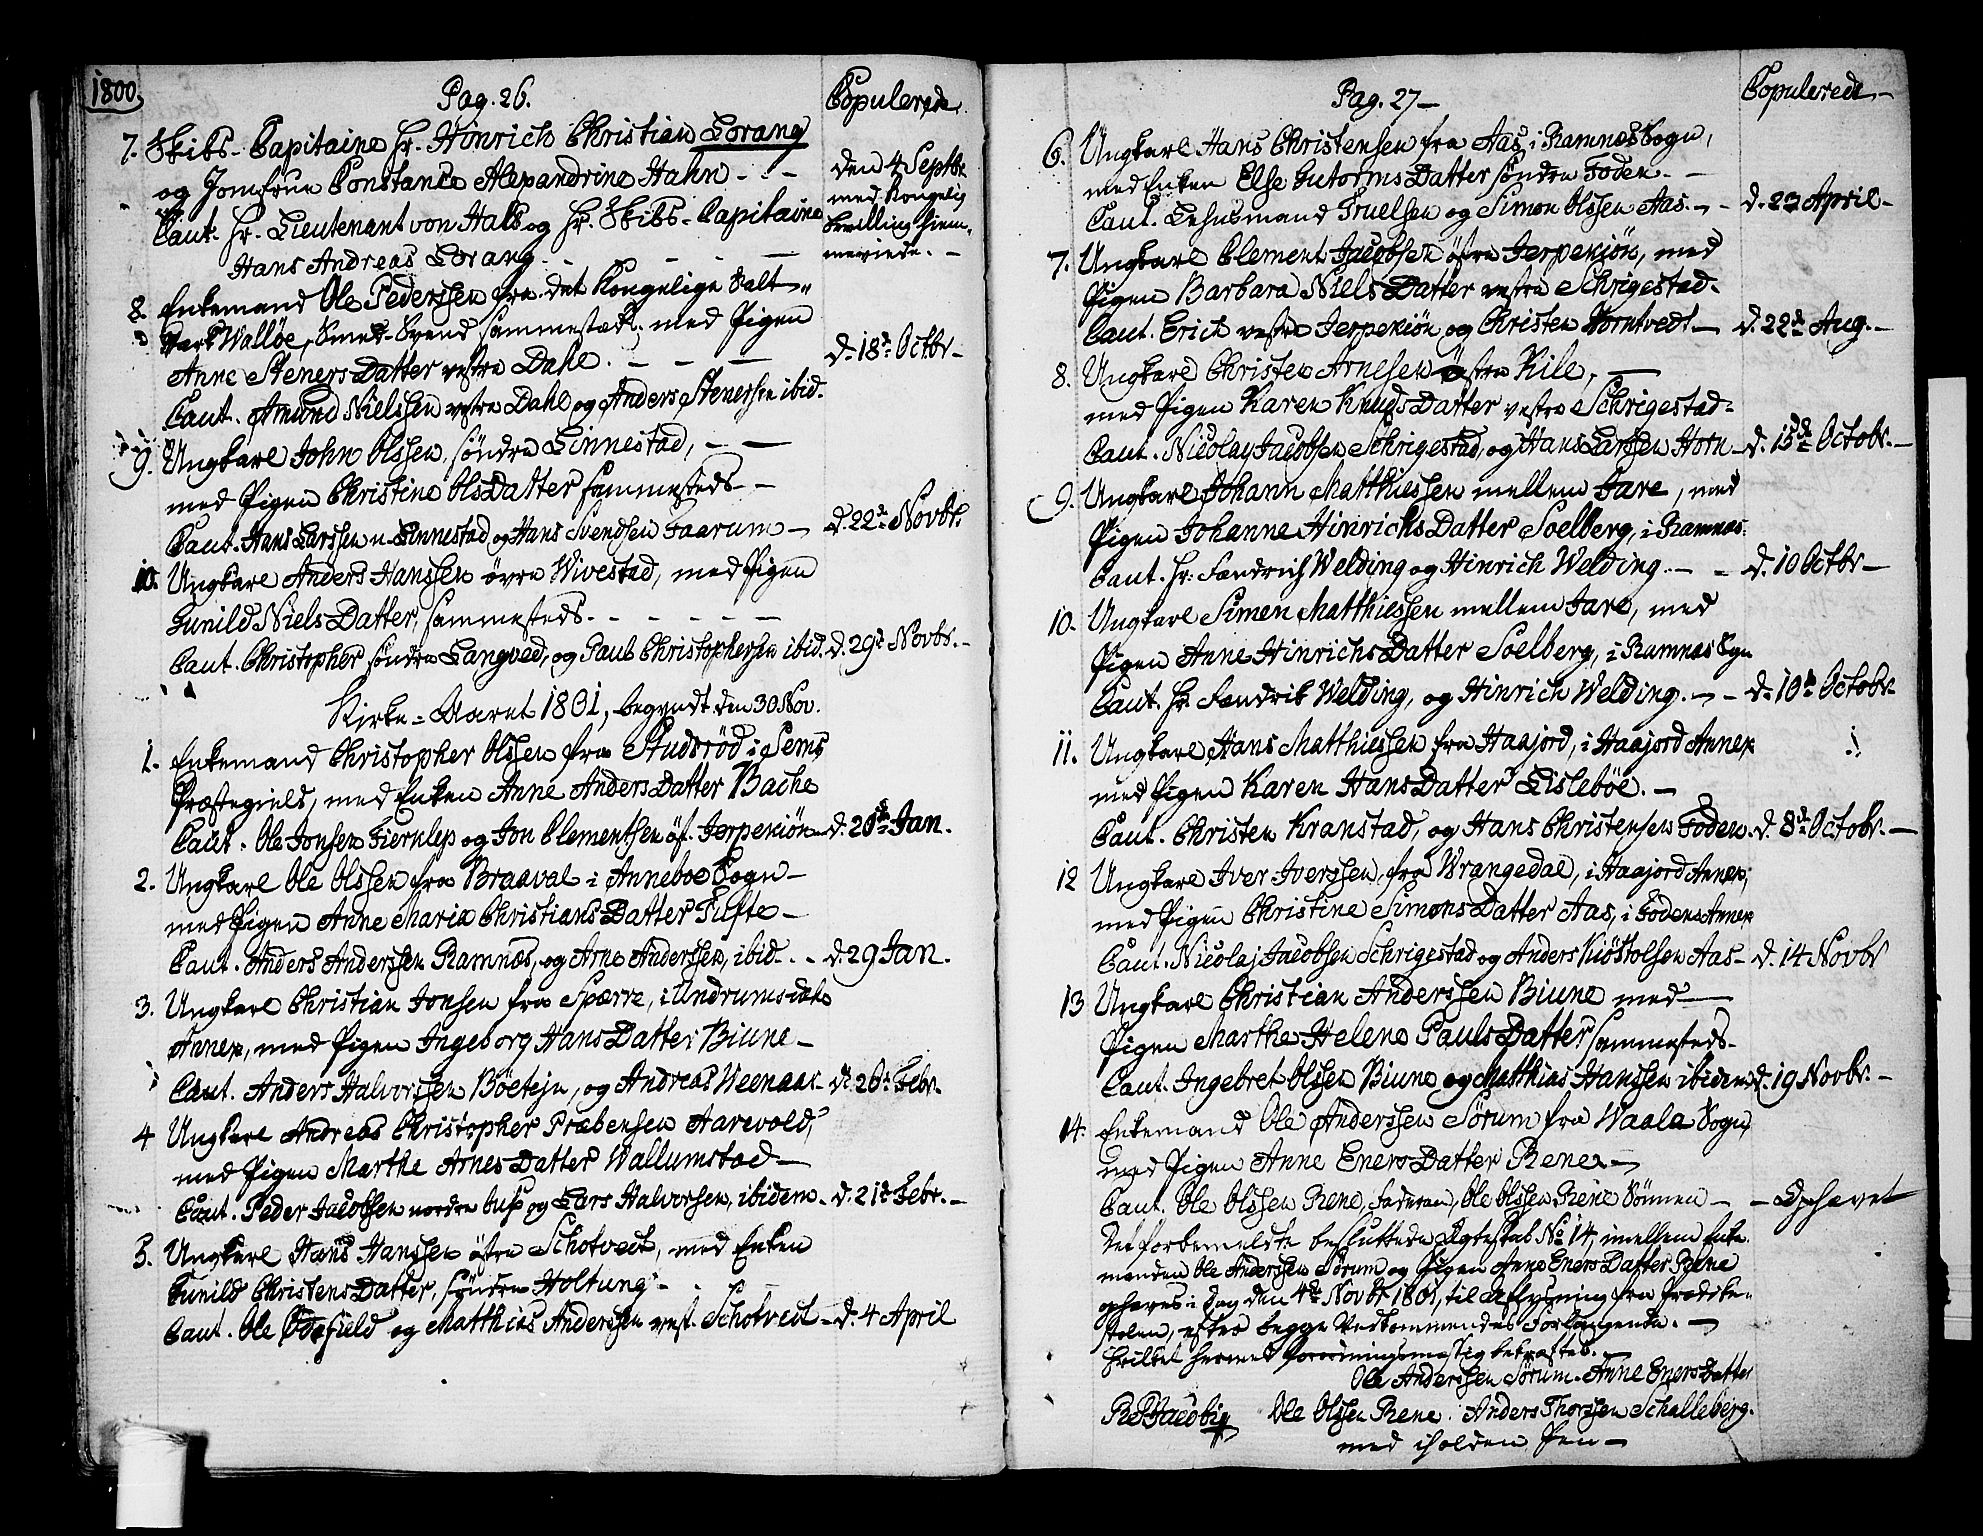 1800.
Pag. 26.
Copulerede.
7. Skibs-Capitaine Hr. Hinrich Christian Lorang
og Jomfrue Constance Alexandrine Hahn - - -
den 4 Septbr.
med Kongelig
Bevilling hiem-
meviede. -
Caut. Hr. Lieutenant von Hals og Hr. Skibs-Capitaine
Hans Andreas Lorang. - - - -
8. Enkemand Ole Pederssen fra det Kongelige Salt-
Værk Walløe, Smed-Svend sammesteds, med Pigen
Anne Steners Datter vestre Dahl. - - -
d. 18de Octbr. -
Caut. Amund Nielssen vestre Dahl og Anders Stenerssen ibid.
9. Ungkarl John Olssen, søndre Linnestad, - -
med Pigen Christine Ols Datter sammesteds. - -
Caut. Hans Larssen n. Linnestad og Hans Svendsen Faarum -
d. 22de Novbr.
10. Ungkarl Anders Hanssen øvre Wivestad, med Pigen
Gunild Niels Datter, sammesteds. - - - - -
Caut. Christopher søndre Langved, og Paul Christophersen ibid. d. 29de Novbr. -
Kirke-Aaret 1801, begyndt den 30 Nov.
1. Enkemand Christopher Olssen fra Studsrød i Sems
Præstegield, med Enken Anne Anders Datter Bache
Caut. Ole Jonsen Fiernlep og Jon Clementsen øf. Jerpekiøn - d. 20de Jan.
2. Ungkarl Ole Olssen fra Braaval i Anneboe Sogn -
med Pigen Anne Maria Christians Datter Tufte -
Caut. Anders Anderssen Ramnæs, og Arne Anderssen, ibid. - - d. 29 Jan.
3. Ungkarl Christian Jonsen fra Spærre, i Undrumsdals
Annex, med Pigen Ingeborg Hans Datter Biune -
Caut. Anders Halvorssen Böetejn, og Andreas Weenaas - d. 20de Febr.
4 Ungkarl Andreas Christopher Præbensen Aarevold,
med Pigen Marthe Arnes Datter Wallumstad -
Caut. Peder Jacobsen nordre Aus og Lars Halvorsen, ibidem - d. 21de Febr. -
5. Ungkarl Hans Hanssen østre Schotvedt, med Enken
Gunild Christens Datter, søndre Holtung - - - -
Caut. Ole Odefield og Matthias Anderssen vest. Schotvedt - d. 4 April
Pag. 27 -
Copulerede -
6. Ungkarl Hans Christensen fra Aas i Ramnæs Sogn,
med Enken Else Gutorms Datter søndre Foden. - -
Caut. Lehnsmand Truelsen og Simon Olssen Aas. - - d. 23 April -
7. Ungkarl Clement Jacobsen øfre Jerpekiøn, med
Pigen Barbara Niels Datter vestre Schrigestad -
Caut. Erich vestre Jerpekiøn og Christen Horntvedt - d. 22de Aug. -
8. Ungkarl Christen Arnesen østre Kile, -
med Pigen Karen Knuds Datter vestre Schrigestad -
Caut. Nicolay Jacobsen Schrigestad, og Hans Larssen Horn - d. 15de Octobr. -
9. Ungkarl Johann Matthiessen mellem Jare, med
Pigen Johanne Hinrichs Datter Soelberg, i Ramnæs.
Caut. Hr. Fændrich Welding og Hinrich Welding. - - d. 10 Octbr -
10. Ungkarl Simen Matthiessen mellem Jare, med
Pigen Anne Hinrichs Datter Soelberg, i Ramnæs Sogn
Caut. Hr. Fændrik Welding, og Hinrich Welding. - - d. 10de Octobr -
11. Ungkarl Hans Matthiessen fra Haajord, i Haajord Annex
med Pigen Karen Hans Datter Lislebøe. -
Caut. Christen Kranstad, og Hans Christensen Foden. d. 8de Octobr. -
12 Ungkarl Iver Iverssen, fra Wrangedal, i Haajord Annex,
med Pigen Christine Simons Datter Aas, i Fodens Annex
Caut. Nicolaj Jacobsen Schrigestad og Anders Kiöstolsen Aas - d. 14 Novbr
13 Ungkarl Christian Anderssen Biune med -
Pigen Marthe Helene Pauls Datter sammesteds -
Caut. Ingebret Olssen Biune og Matthias Hanssen ibidem d. 19 Novbr. -
14. Enkemand Ole Anderssen Sørum fra Waale Sogn,
med Pigen Anne Eners Datter Rene. -
Caut. Ole Olssen Rene, Faderen, Ole Olssen Rene Sønnen - - Ophævet
Det forbemeldte besluttede Ægteskab No 14, imellem Enke-
manden Ole Anderssen Sørum og Pigen Anne Eners Datter Rene
ophæves i Dag den 4de Novbr 1801, til Aflysning fra Prædike-
stolen, efter begge Vedkommendes Forlangende. -
Hvilket hermed forordningsmæssig bekræftes. -
Ole Anderssen Sørum. Anne Eners Datter
Ole Olssen Rene. Anders Thorssen Schalleberg.
med iholden Pen -